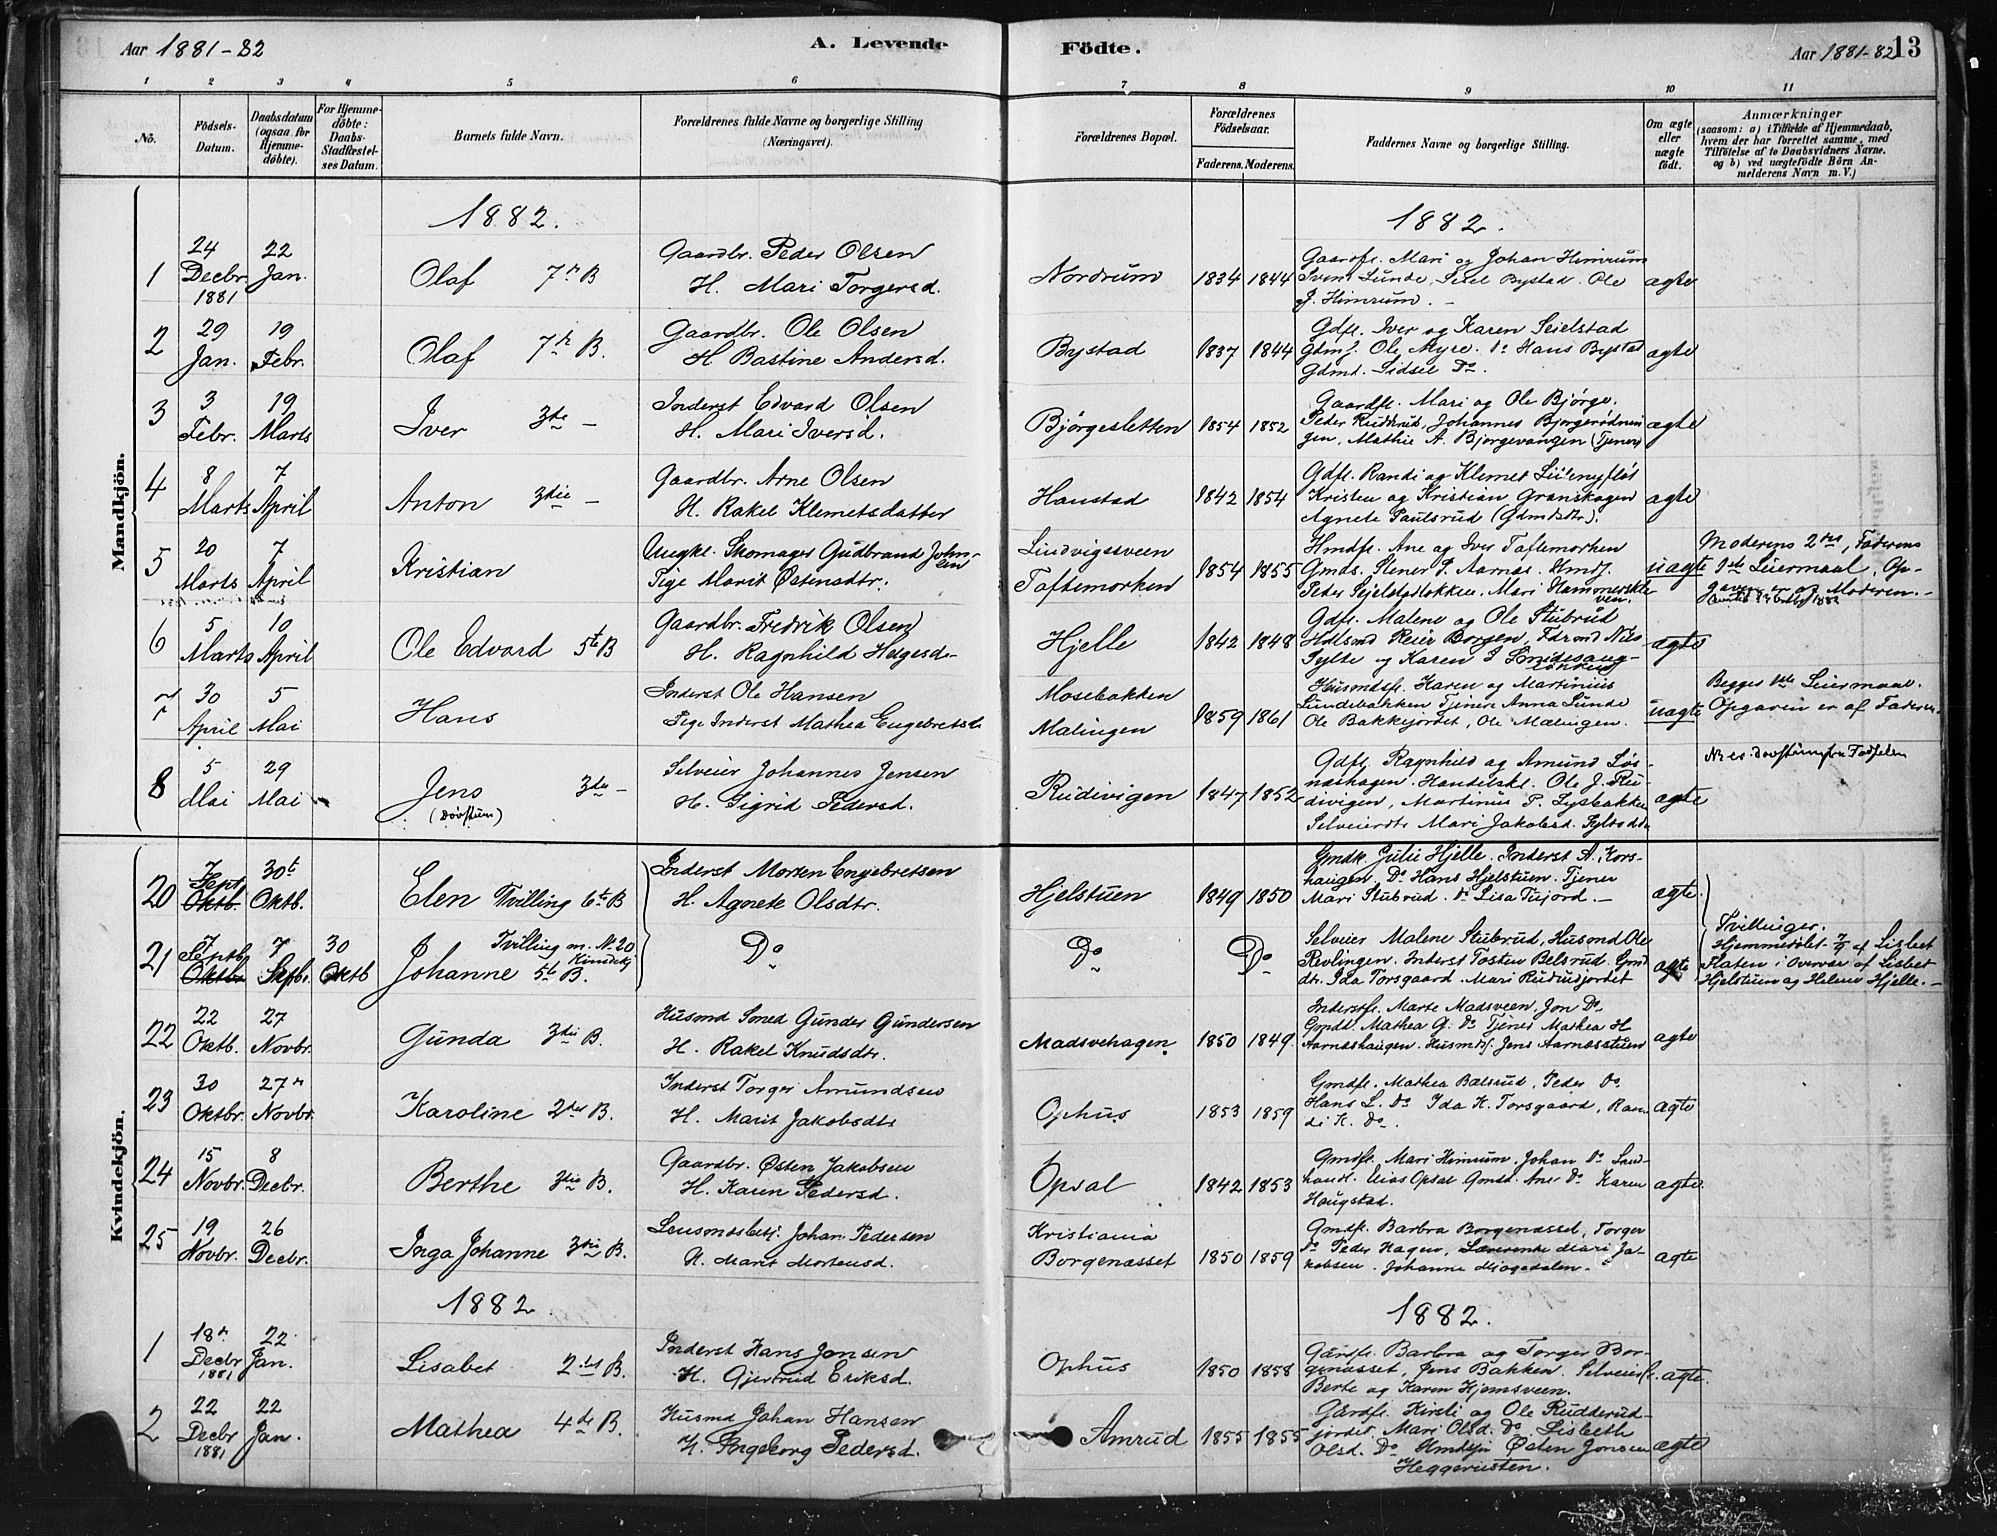 Aar 1881-82
A. Levende
Födte.
Aar 1881-82
13
1 2 3 4 5 6 7 8 9 10 11
No.
Födsels-Datum.
Daabsdatum (ogsaa for Hjemme-döbte).
For Hjemme-döbte: Daabs-Stadfæstel-ses Datum.
Barnets fulde Navn.
Forældrenes fulde Navne og borgerlige Stilling (Næringsvei).
Forældrenes Bopæl.
Forældrenes Födselsaar.
Faderens. Moderens.
Faddernes Navne og borgerlige Stilling.
Om ægte eller uægte födt.
Anmærkninger
(saasom: a) i Tilfælde af Hjemmedaab, hvem der har forrettet samme, med Tilföielse af to Daabsvidners Navne. og b) ved uægtefödte Börn An-melderens Navn m. V.)
Mandkjön.
1882.
1882.
1 24 Decbr. 1881 22 Jan. Olaf 7de B
Gaardbr. Peder Olsen
H. Mari Torgersd.
Nordrum 1834 1844
Gaardfl. Mari og Johan Himrum
Svend Lunde, Sidsel Bystad. Ole
J. Himrum.
ægte
2 29 Jan. 19 Febr. Olaf 7de B.
Gaardbr. Ole Olsen
H Bastine Andersd.
Bystad 1837 1844
Gdfl. Iver og Karen Seielstad
Gdmf. Ole Myre. Do Hans Bystad
Gdmd. Sidsel Do.
ægte
3 3 Febr. 19 Marts Iver 3de –
Inderst Edvard Olsen
H. Mari Iversd.
Bjørgesletten 1854 1852
Gaardfl. Mari og Ole Bjørge.
Peder Rudsrud, Johannes Bjørgerødnin
gen, Mathie A. Bjørgevangen (Tjener)
ægte
4 8 Marts 7 April Anton 3die –
Gaardbr. Arne Olsen
H. Rakel Klemetsdatter
Hanstad 1842 1854
Gdfl. Randi og Klemet
Kristen og Kristian Granskogen
Agnete Paulsrud (Gdmdsdtr.)
ægte
5 20 Marts 7 April Kristian
Ungkl. Skomager Gudbrand Johnsen
Pige Marit Østensdtr.
Lindvigssveen
Toftemorken 1854 1855
Hmdfl. Ane og Iver Toftemorken
Gmds. Stener P. Aarnæs. Hmdf.
Peder Sejelstadløkken. Mari Hammersvken
uægte
Moderens 2det, Faderens
1ste Leiermaal. Op-
gaven er af Moderen.
6 5 Marts 10 April Ole Edvard 5te B
Gaardbr. Fredrik Olsen
H. Ragnhild Helgesd.
Hjelle 1842 1848
Gdfl. Malene og Ole Stubrud
Reier Borgen, Nils
Sylte og Karen
ægte
7 30 April 5 Mai Hans
Inderst Ole Hansen
Pige Inderst Mathea Engebretsd.
Mosebakken
Malingen 1859 1861
Husmdsfl. Karen og Martinius
Lundebakken Tjener Anna Lunde
Ole Bakkejordet, Ole Malingen.
uægte
Begges 1ste Leiermaal.
Opgaven er af Faderen.
8 5 Mai 29 Mai Jens 3die –
(Døvstum)
Selveier Johannes Jensen
H. Sigrid Pedersd.
Rudivigen 1847 1852
Gdfl. Ragnhild og Amund Løs-
næshagen. Handelskl. Ole J. Ru-
divigen, Martinius P. Lysbakken
Selveierdtr. Mari Jakobsd.
ægte
No er døvstum fra Fødselen
Kvindekjön.
20 7 Sept. Oktb. 30te Oktb. Elen Tvilling 6te B
Inderst Morten Engebretsen
H. Agnete Olsdtr.
Hjelstuen 1849 1850
Gmdk. Julie Hjelle. Inderst A. Kors-
haugen. Do Hans Hjelstuen. Tjener
Mari Stubrud. Do Lisa Tujord. –
ægte.
21 7 Septb. Oktbr. 7 Septbr. 30 Oktb Johanne 5te B.
Tvilling m. No 20 Kvindekj
Do
Do
Do
Selveier Malene Stubrud, Husmd Ole
Revlingen. Inderst Tosten Belsrud. Gmd
dtr. Ida Torsgaard. Mari Rudrudjordet
ægte
Tvillinger.
Hjemmedøbt 7/9 af Lisbet
Flaten i Overvær af Lisbet
Hjelstuen og Helene Hjelle. –
22 22 Oktb. 27 Novbr. Gunda 3die B.
Husmd Smed Gunder Gundersen
H. Rakel Knudsdtr.
Madsvehagen 1850 1849.
Inderstfl. Marte Madsveen. Jon Do
Gmdd. Mathea G. Do Tjener Mathea H
Aarnæshaugen. Husmdsf. Jens Aarnæsstuen
ægte
23 30 Oktbr. 27de Novbr. Karoline 2det B.
Inderst Torger Amundsen
H. Marit Jakobsdtr
Ophus 1853 1859
Gmdfl. Mathea Bælsrud, Peder Do
Hans L. Do Ida K. Torsgaard, Ran
di K. Do.
ægte
24 15 Novbr. 8 Decbr. Berthe 3die B.
Gaardbr. Østen Jakobsen
H. Karen Pedersd.
Opsal 1842 1853
Gmdfl. Mari Himrum. Johan Do Land
handl. Elias Opsal Gmsd. Ane Do Karen
Haugstad.
ægte.
25 19 Novbr. 26 Decbr. Inga Johanne 3die B.
Lensmdsbetj. Johan Pedersen
H. Marit Mortensd.
Kristiania
Borgenæsset 1850 1859
Gmdfl. Barbra Borgenæsset, Torger
Do Peder Hagen, Mari Ja-
kobsen. Johanne
ægte
1882.
1882.
1 18de Decbr 1881 22 Jan. Lisabet 2det B.
Inderst Hans Jonsen
H. Gjertrud Eriksd.
Ophus 1850 1858
Gårdfl. Barbra og Torger Bor-
genæsset, Jens Bakken. Selveierfl.
Berte og Karen Hjemsveen.
ægte.
2 22 Decbr 1881 22 Jan. Mathea 4de B.
Husmd Johan Hansen
H. Ingeborg Pedersd.
Amrud 1855 1855
Gårdfl. Kirsti og Ole Rudderud-
jordet. Mari Olsd. Do Lisbeth
Olsd. Do Østen Jonsen
Heggeriusten.
ægte